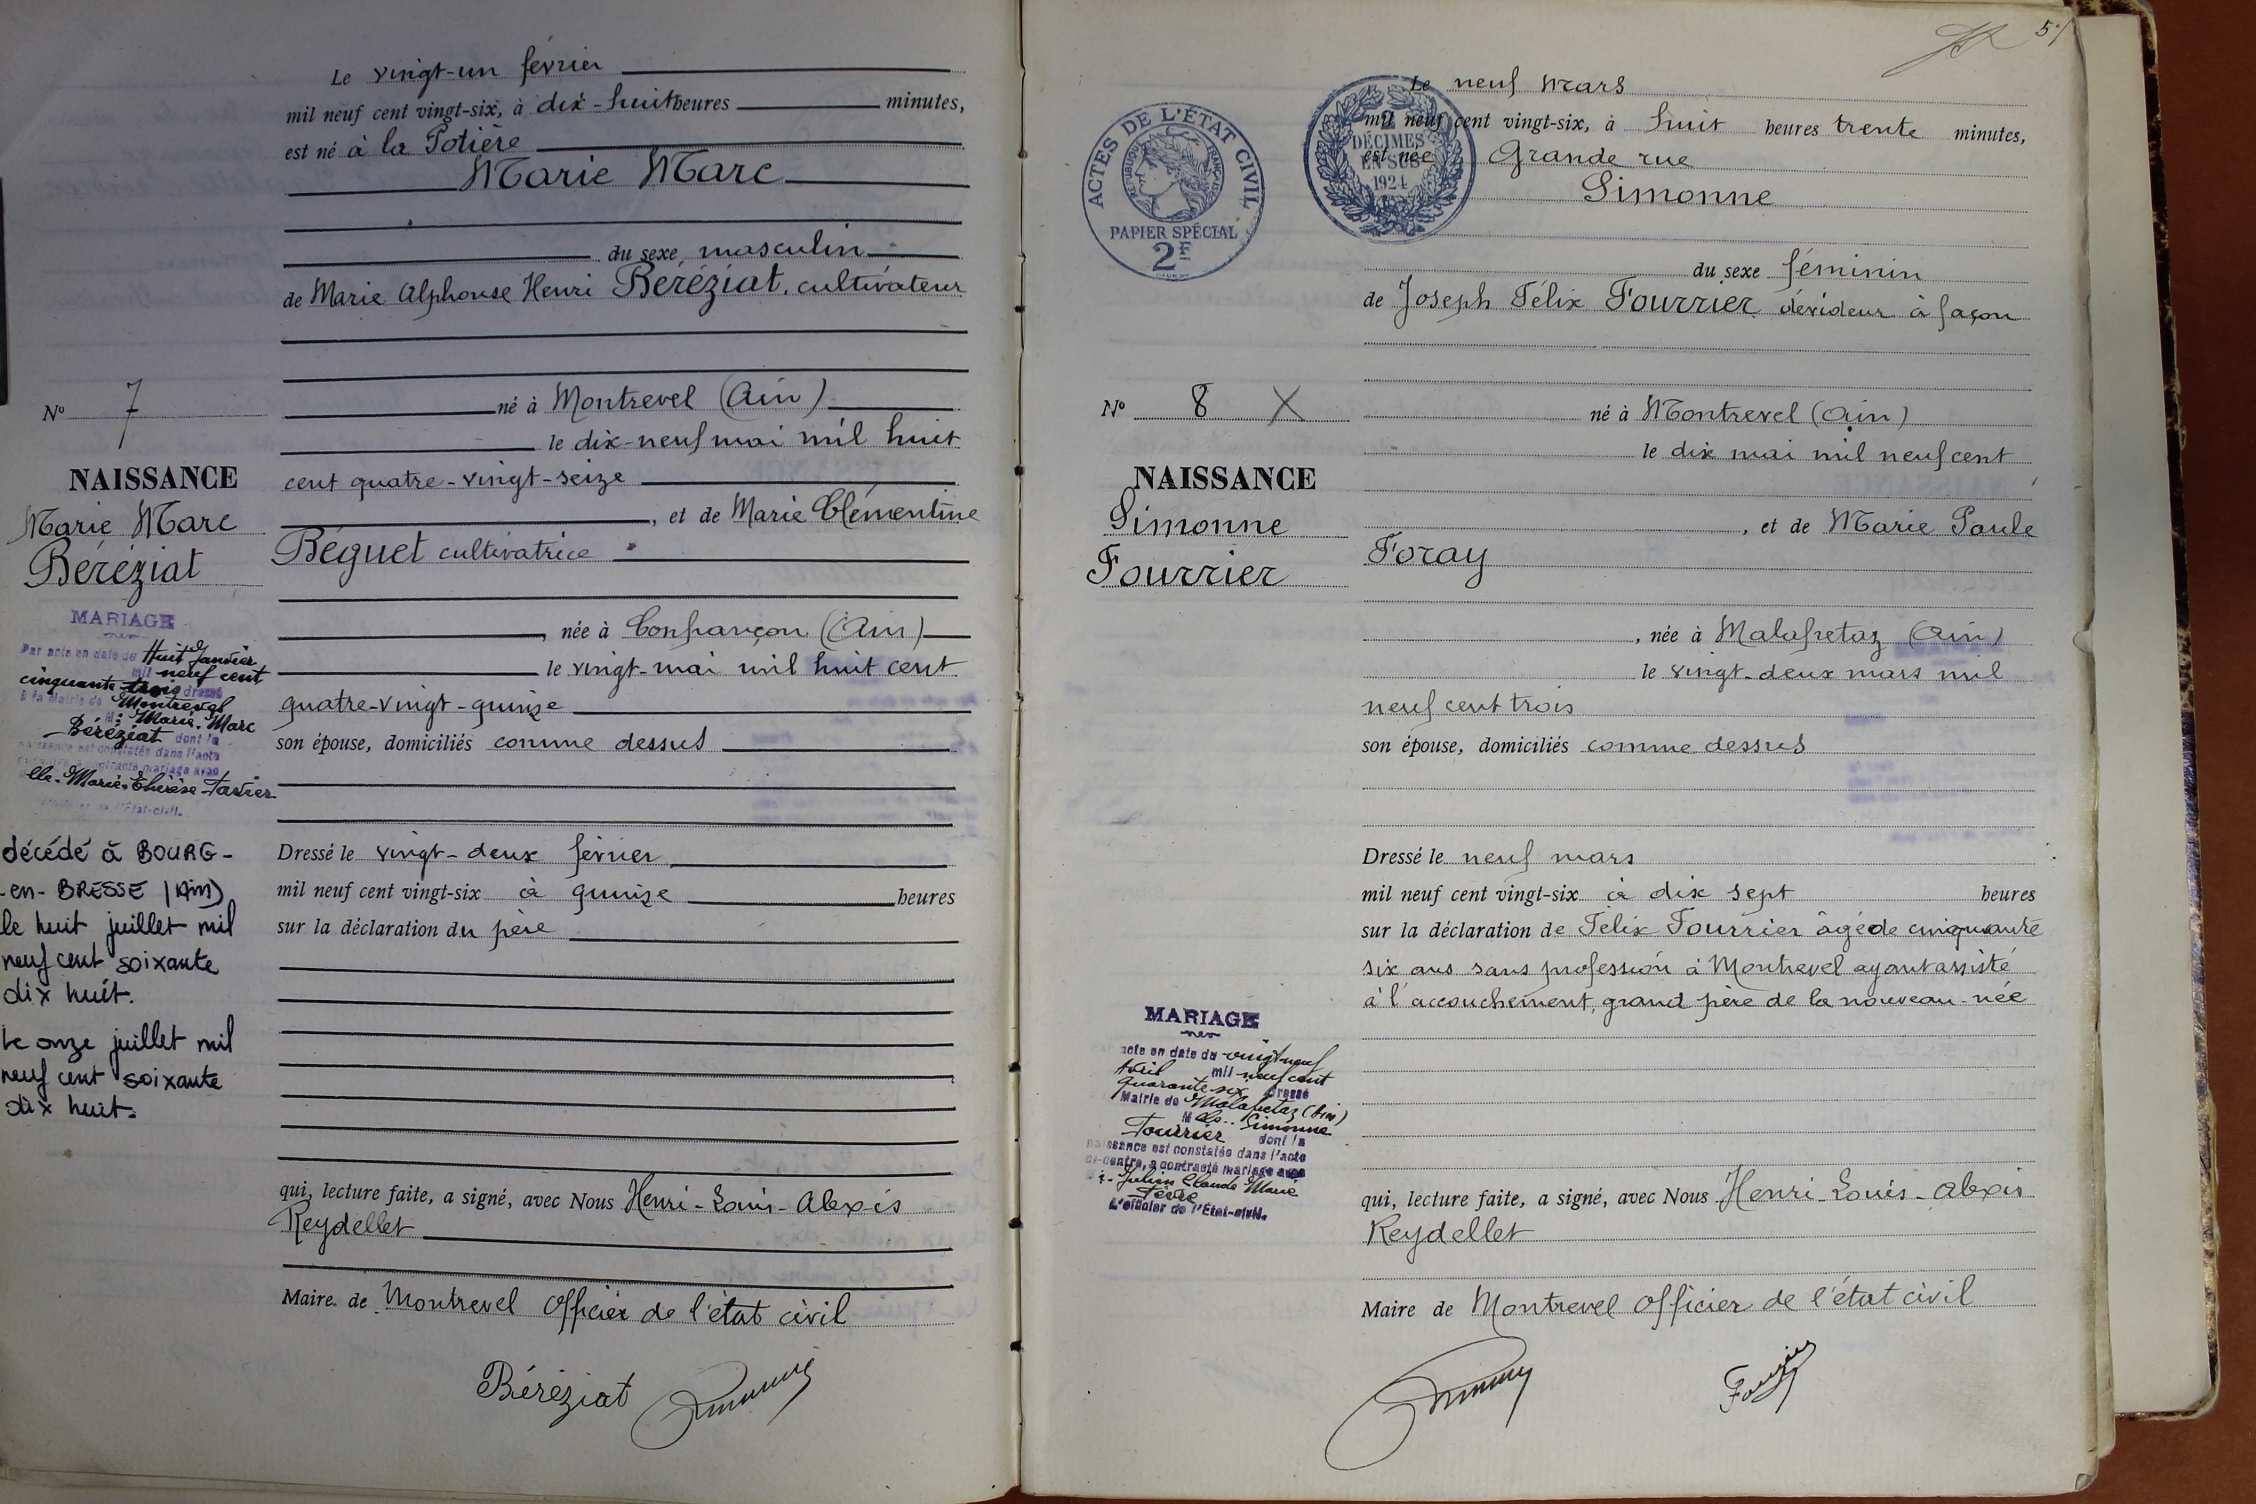 Le vingt-un février
mil neuf cent vingt-six, à dix-huit heures minutes,
est né à la Potière
Marie Marc
du sexe masculin
de Marie Alphonse Henri Béréziat, cultivateur
né à Montrevel (Ain)
le dix-neuf mai mil huit
cent quatre-vingt-seize
, et de Marie Clémentine
Béguet cultivatrice
, née à Confrançon (Ain)
le vingt-mai mil huit cent
quatre-vingt-quinze
son épouse, domiciliés comme dessus
Dressé le vingt-deux février
mil neuf cent vingt-six à quinze heures
sur la déclaration du père
qui, lecture faite, a signé, avec Nous Henri-Louis-Alexis
Reydellet
Maire de Montrevel officier de l'état civil
Béréziat
No 7
NAISSANCE
Marie Marc
Béréziat
MARIAGE
Par acte en date du Huit Janvier
mil neuf cent
cinquante trois dressé
à la Mairie de Montrevel
M: Marie-Marc
Béréziat dont la
naissance est constatée dans l'acte
ci-contre, a contracté mariage avec
Elle-Marie-Thérèse-Tavier
L'officier de l'État-civil.
décédé à BOURG-
-en-BRESSE (Ain)
le huit juillet mil
neuf cent soixante
dix huit.
Le onze juillet mil
neuf cent soixante
dix huit.
5
ACTES DE L'ÉTAT CIVIL
RÉPUBLIQUE FRANÇAISE
PAPIER SPÉCIAL
2F
2
DÉCIMES
EN SUS
1924
Le neuf Mars
mil neuf cent vingt-six, à huit heures trente minutes,
est née Grande rue
Simonne
du sexe féminin
de Joseph Félix Fourrier dévideur à façon
né à Montrevel (Ain)
le dix mai mil neuf cent
, et de Marie Paule
Foray
, née à Malafretaz (Ain)
le vingt-deux mars mil
neuf cent trois
son épouse, domiciliés comme dessus
Dressé le neuf mars
mil neuf cent vingt-six à dix sept heures
sur la déclaration de Félix Fourrier âgé de cinquante
six ans sans profession à Montrevel ayant assisté
à l'accouchement, grand père de la nouveau-née
qui, lecture faite, a signé, avec Nous Henri-Louis-Alexis
Reydellet
Maire de Montrevel officier de l'état civil
Fourrier
No 8 X
NAISSANCE
Simonne
Fourrier
MARIAGE
acte en date du vingt neuf
Avril mil neuf cent
quarante-six dressé
Mairie de Malafretaz (Ain)
M lle. Simonne
Fourrier dont la
naissance est constatée dans l'acte
ci-contre, a contracté mariage avec
Julien Claude Marie
L'officier de l'État-civil.